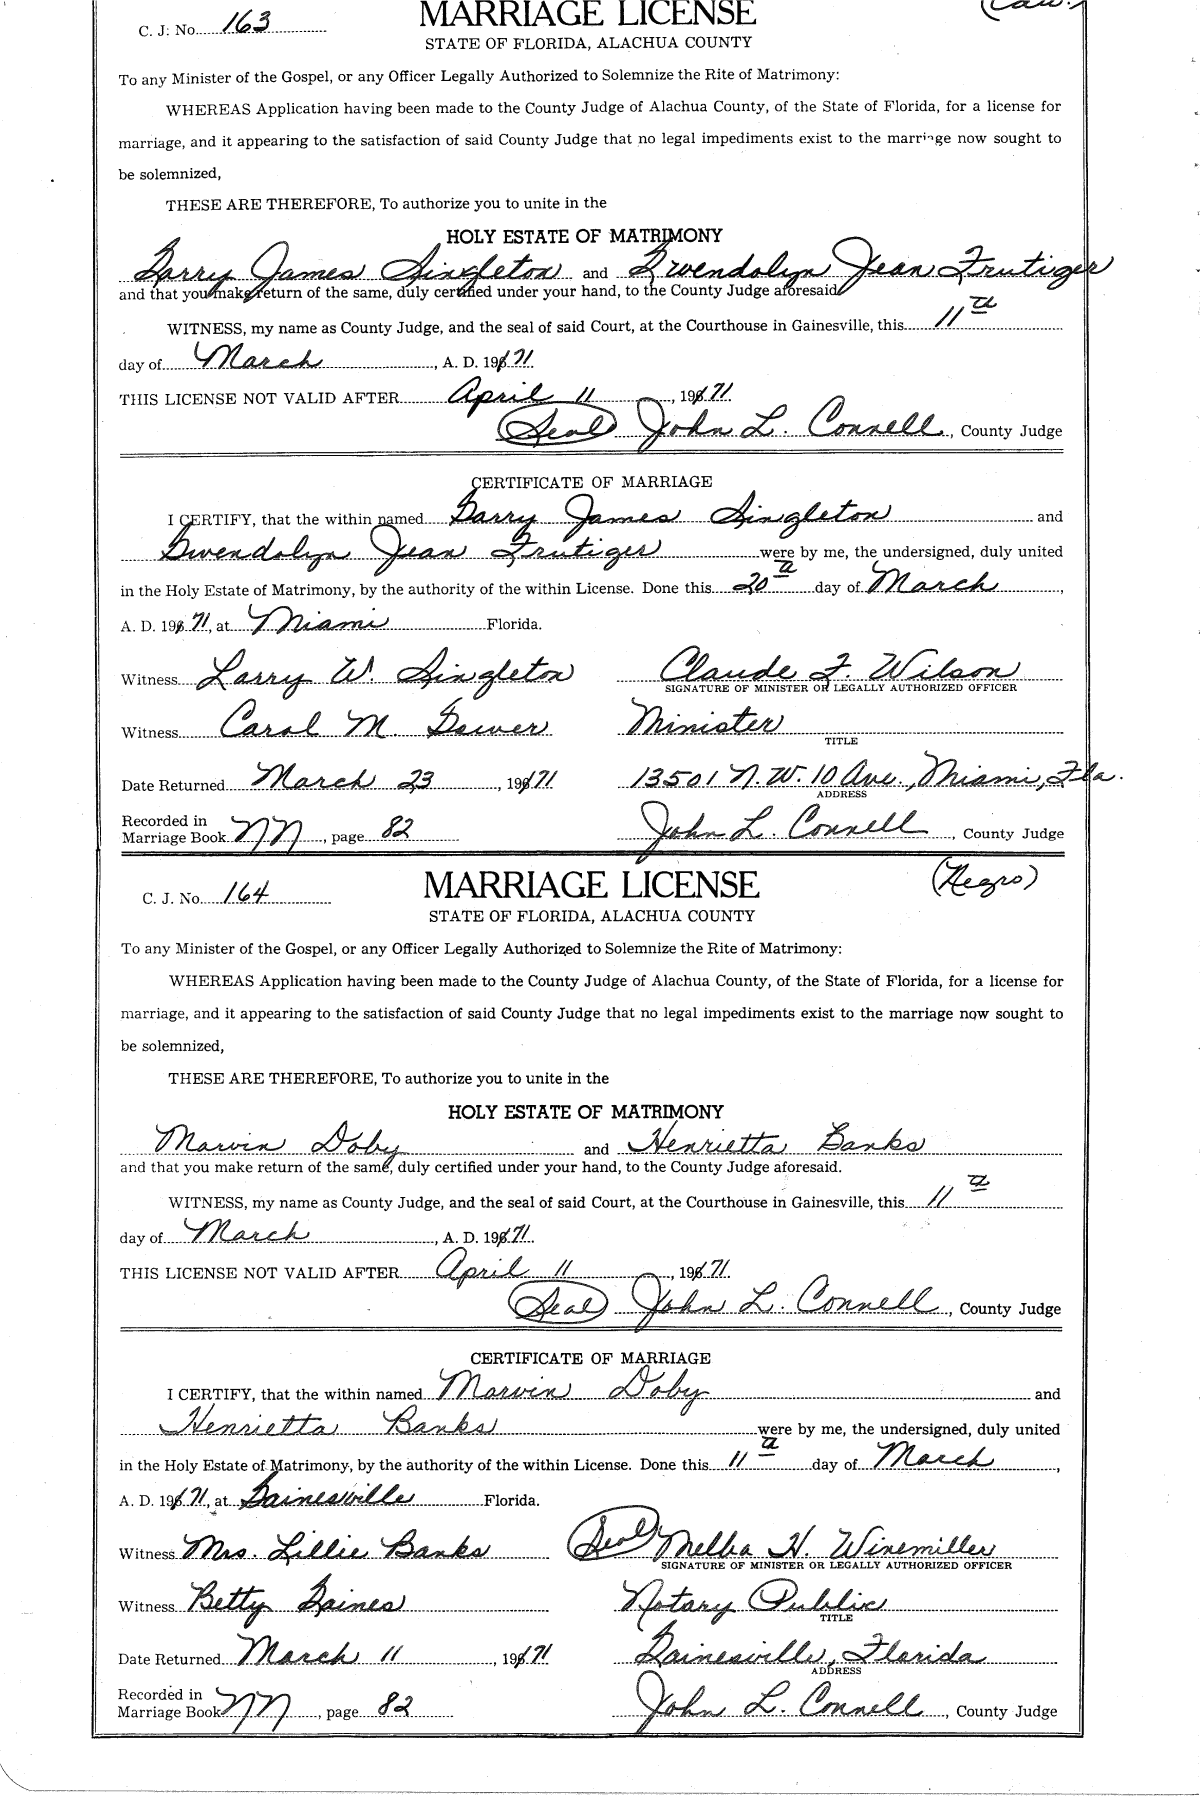 C. J. No. 163 MARRIAGE LICENSE (Cau.)
STATE OF FLORIDA, ALACHUA COUNTY
To any Minister of the Gospel, or any Officer Legally Authorized to Solemnize the Rite of Matrimony:
WHEREAS Application having been made to the County Judge of Alachua County, of the State of Florida, for a license for
marriage, and it appearing to the satisfaction of said County Judge that no legal impediments exist to the marriage now sought to
be solemnized,
THESE ARE THEREFORE, To authorize you to unite in the
HOLY ESTATE OF MATRIMONY
Garry James Singleton and Gwendolyn Jean Frutiger
and that you make return of the same, duly certified under your hand, to the County Judge aforesaid.
WITNESS, my name as County Judge, and the seal of said Court, at the Courthouse in Gainesville, this 11th
day of March, A. D. 1971.
THIS LICENSE NOT VALID AFTER April 11, 1971.
(Seal) John L. Connell, County Judge
CERTIFICATE OF MARRIAGE
I CERTIFY, that the within named Garry James Singleton and
Gwendolyn Jean Frutiger were by me, the undersigned, duly united
in the Holy Estate of Matrimony, by the authority of the within License. Done this 20th day of March,
A. D. 1971, at Miami Florida.
Witness Larry W. Singleton Claude F. Wilson
SIGNATURE OF MINISTER OR LEGALLY AUTHORIZED OFFICER
Witness Carol M. Minister
TITLE
Date Returned March 23, 1971 13501 N.W. 10 Ave., Miami, Fla.
ADDRESS
Recorded in
Marriage Book NN, page 82 John L. Connell, County Judge
C. J. No. 164 MARRIAGE LICENSE (Negro)
STATE OF FLORIDA, ALACHUA COUNTY
To any Minister of the Gospel, or any Officer Legally Authorized to Solemnize the Rite of Matrimony:
WHEREAS Application having been made to the County Judge of Alachua County, of the State of Florida, for a license for
marriage, and it appearing to the satisfaction of said County Judge that no legal impediments exist to the marriage now sought to
be solemnized,
THESE ARE THEREFORE, To authorize you to unite in the
HOLY ESTATE OF MATRIMONY
Marvin Doby and Henrietta Banks
and that you make return of the same, duly certified under your hand, to the County Judge aforesaid.
WITNESS, my name as County Judge, and the seal of said Court, at the Courthouse in Gainesville, this 11th
day of March, A. D. 1971.
THIS LICENSE NOT VALID AFTER April 11, 1971.
(Seal) John L. Connell, County Judge
CERTIFICATE OF MARRIAGE
I CERTIFY, that the within named Marvin Doby and
Henrietta Banks were by me, the undersigned, duly united
in the Holy Estate of Matrimony, by the authority of the within License. Done this 11th day of March,
A. D. 1971, at Gainesville Florida.
Witness Mrs. Lillie Banks (Seal) Melba H. Winemiller
SIGNATURE OF MINISTER OR LEGALLY AUTHORIZED OFFICER
Witness Betty Gaines Notary Public
TITLE
Date Returned March 11, 1971 Gainesville, Florida
ADDRESS
Recorded in
Marriage Book NN, page 82 John L. Connell, County Judge